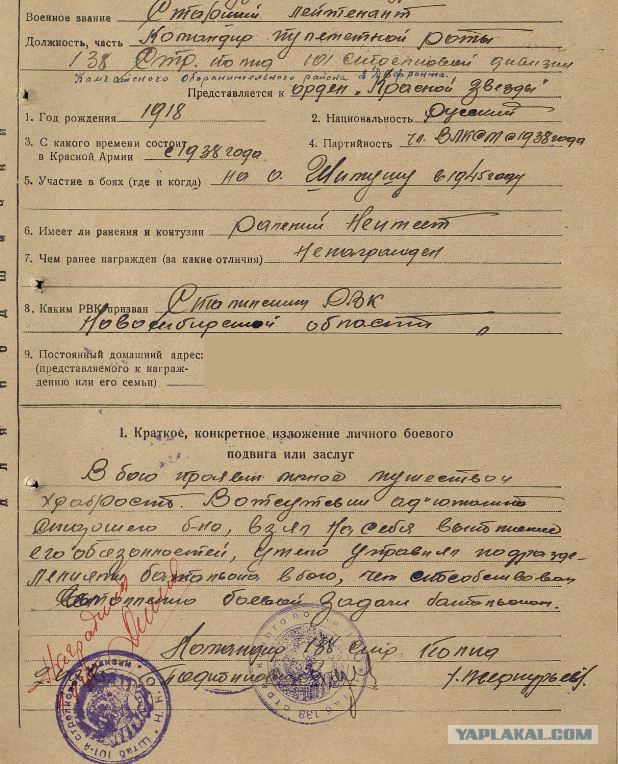 Военное звание Старший лейтенант
Должность, часть Командир пулеметной роты
138 Стр. полка 101 стрелковой дивизии
Камчатского Оборонительного района 2 Д.В. фронта.
Представляется к орден „Красной Звезды"
1. Год рождения 1918
2. Национальность Русский
3. С какого времени состоит
в Красной Армии с 1938 года
4. Партийность чл. ВЛКСМ с 1938 года
5. Участие в боях (где и когда) на о. Шумшу в 1945 году
6. Имеет ли ранения и контузии ранений Неимеет
7. Чем ранее награжден (за какие отличия) Ненагражден
8. Каким РВК призван Сталинским РВК
Новосибирской области
9. Постоянный домашний адрес:
(представляемого к награж-
дению или его семьи)
I. Краткое, конкретное изложение личного боевого
подвига или заслуг
В бою проявил личное мужество и
храбрость. В отсутствии ад'ютанта
старшего б-на, взял на себя выполнение
его обязанностей, умело управлял подразде-
лениями батальона в бою, чем способствовал
выполнению боевой задачи батальоном.
Награжден
Командир 138 стр. полка
Штаб 101-й стрелковой дивизии
YAPLAKAL.COM